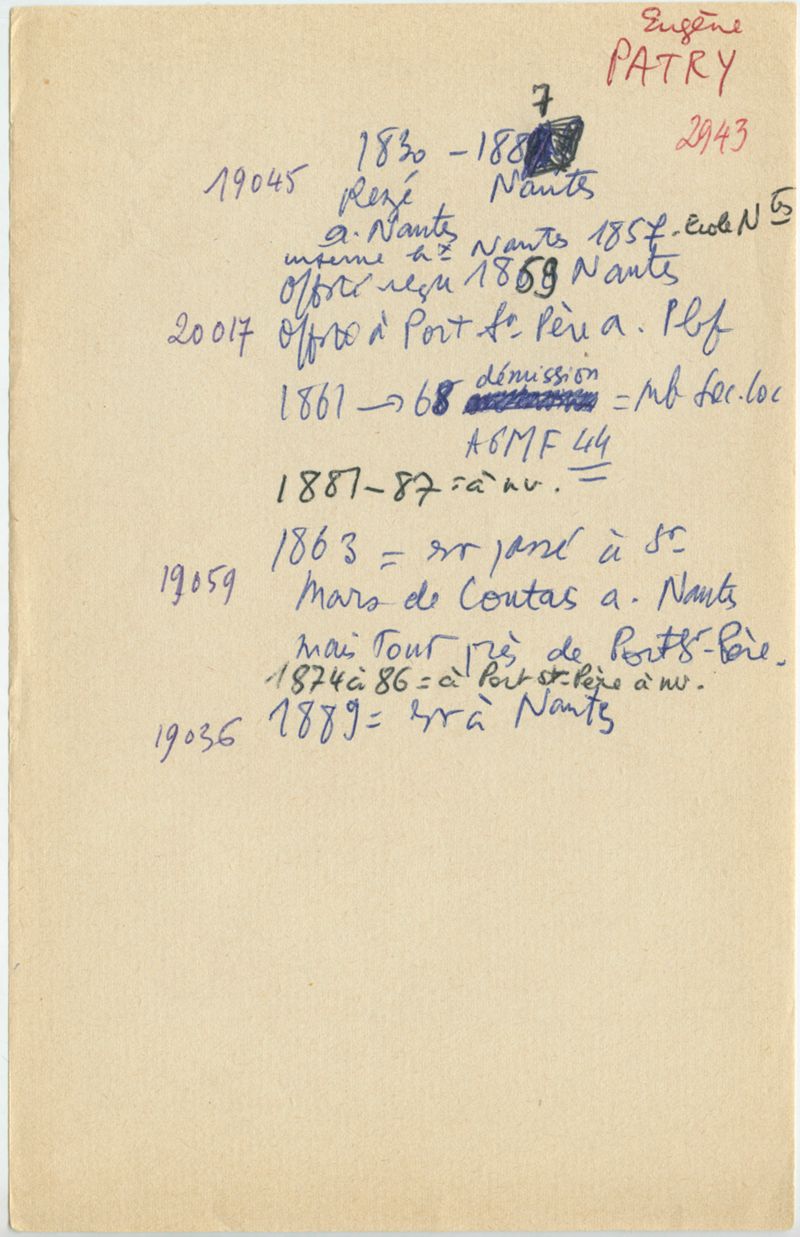 Eugène
PATRY
2943
7
1830 - 188
19045 Rezé Nantes
a. Nantes
interne hx Nantes 1857. Ecole Ntes
Offsté reçu 1859 Nantes
20017 Offsté à Port St Père a. Pbf
démission
1861 → 68 = mb Soc. loc
AGMF 44
1881-87 = à nv.
1863 = est passé à St
19059 Mars de Coutas a. Nantes
mais tout près de Port St-Père.
1874 à 86 = à Port St-Père à nv.
19036 1889 = est à Nantes